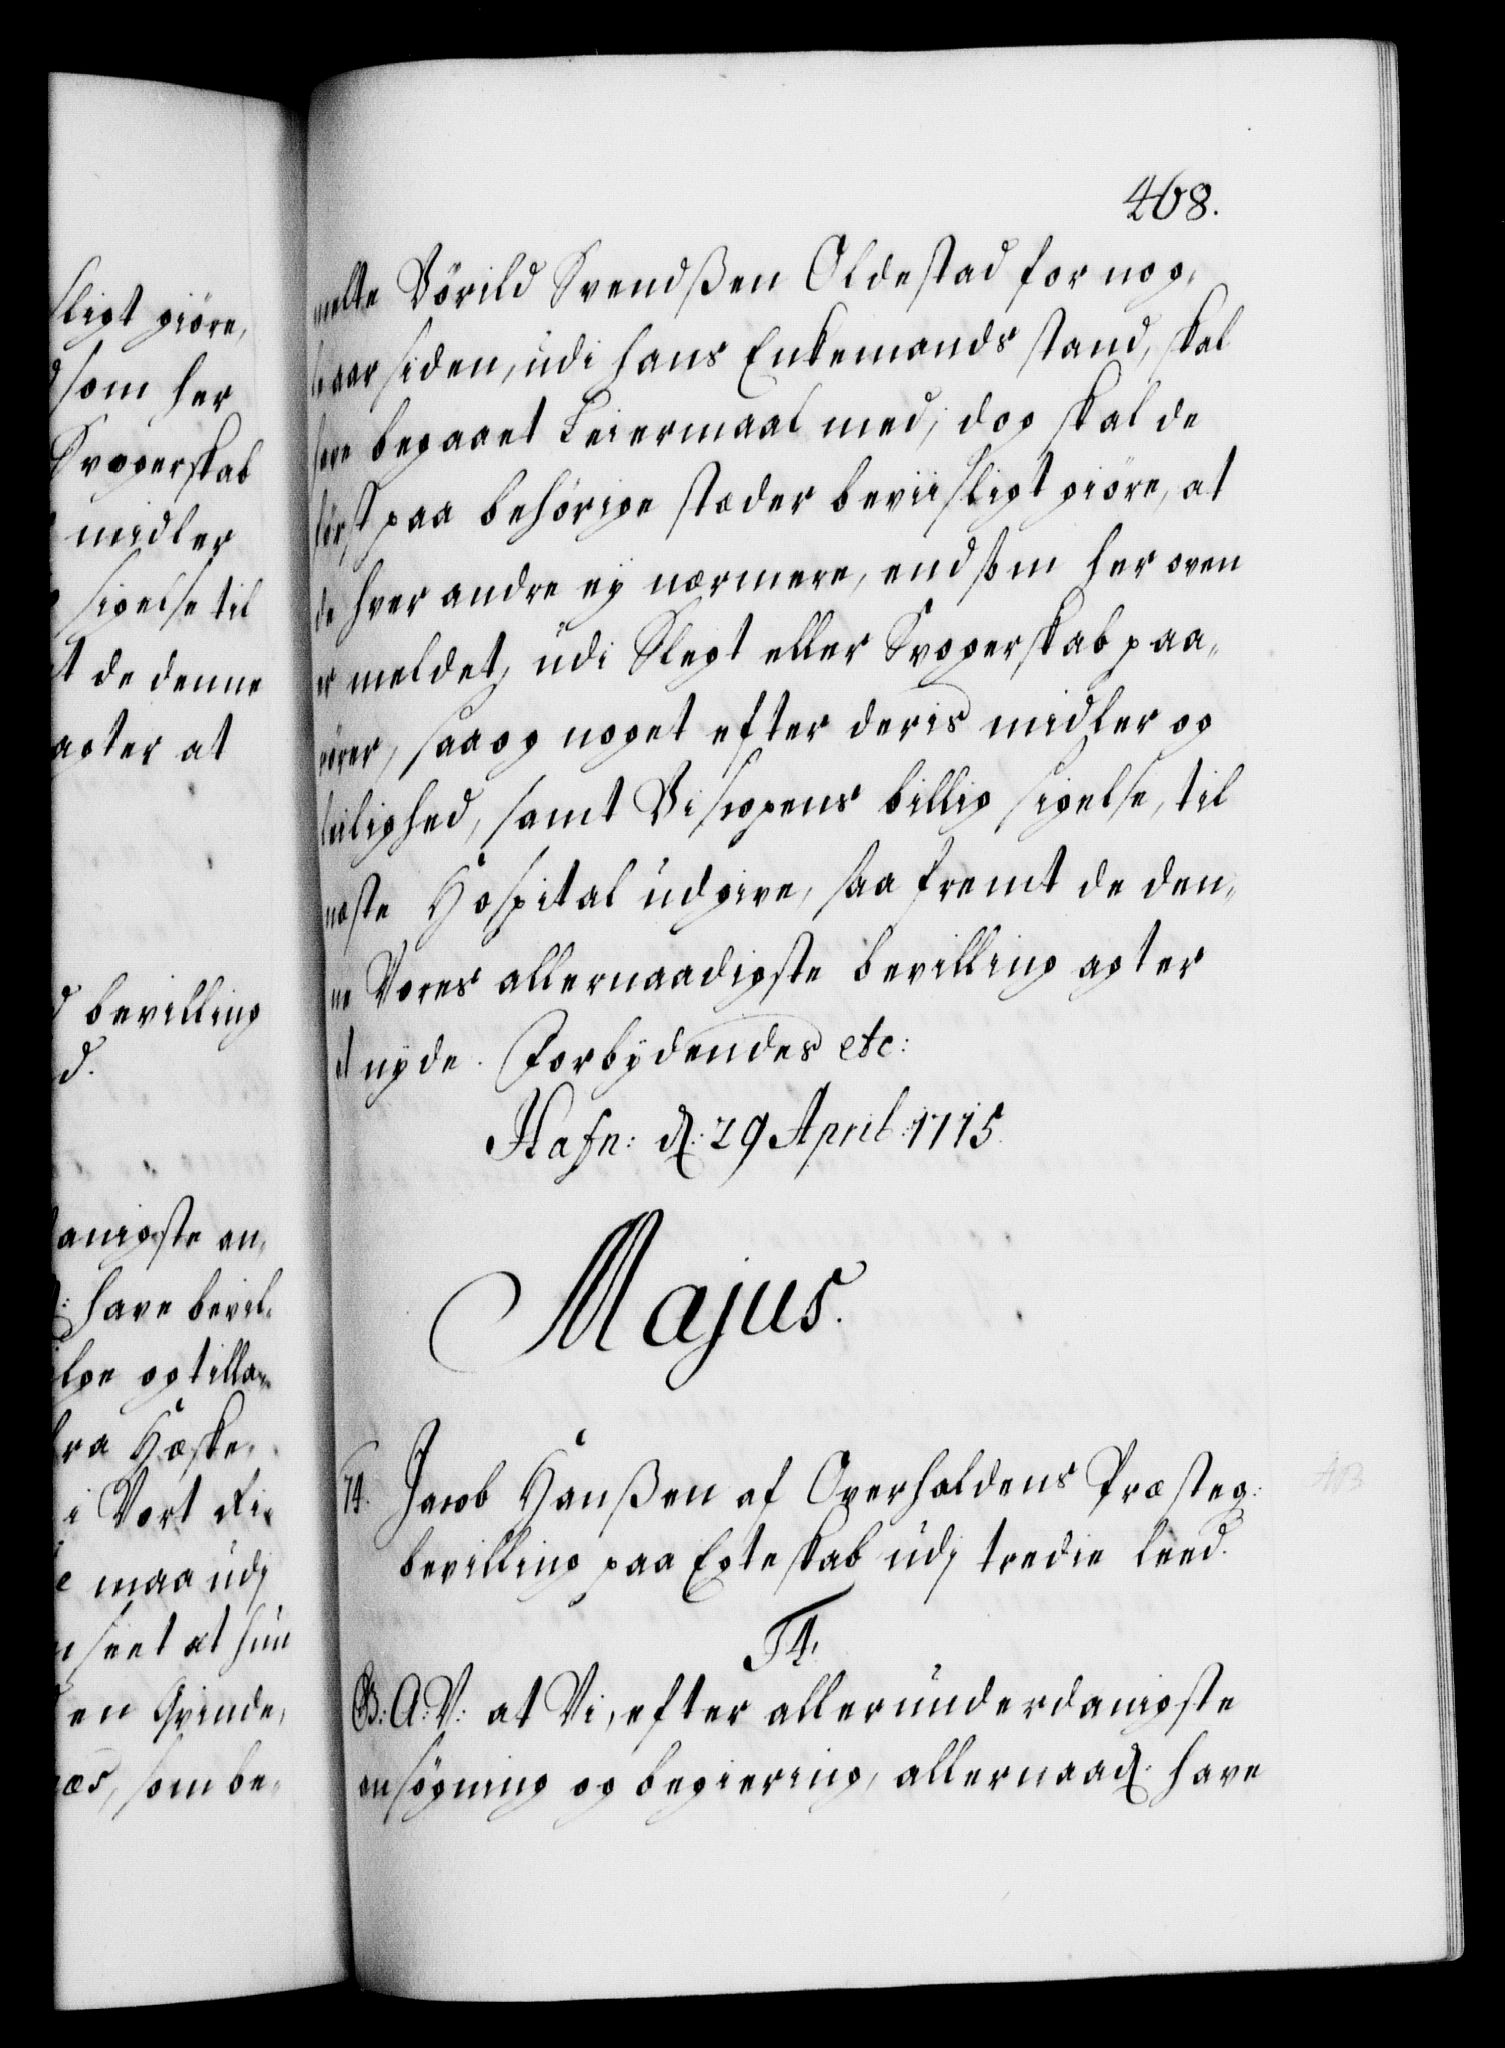 sligt giöre,
som her
Svogerskab
midler
sigelse til
t de denne
agter at
bevilling
d.
danigste an,
have bevil,
og tilla,
fra Hæske,
i Vort Ri,
maa udj
seet at hun
en Qvinde,
næs, som be,
408.
melte Vörild Svendßen Oldestad for nog,
le aar siden, udi hans Enkemands stand, skal
have begaaet Leiermaal med, dog skal de
först paa behörige stæder beviisligt giöre, at
de hver andre ey nærmere, end som her oven
er meldet, udi Slegt eller Svogerskab paa,
rörer, saa og noget efter deris midler og
leilighed, samt Biscopens billig sigelse, til
næste Hospital udgive, saa fremt de den,
ne Vores allernaadigste bevilling agter
at nyde. Forbydendes etc:
Hafn: d: 29 April: 1715.
Majus.
74. Jacob Hanßen af Overhaldens Præsteg:
bevilling paa Egteskab udj tredie leed.
F4.
G: A: V: at Vi, efter allerunderdanigste
ansögning og begiering, allernaad: have